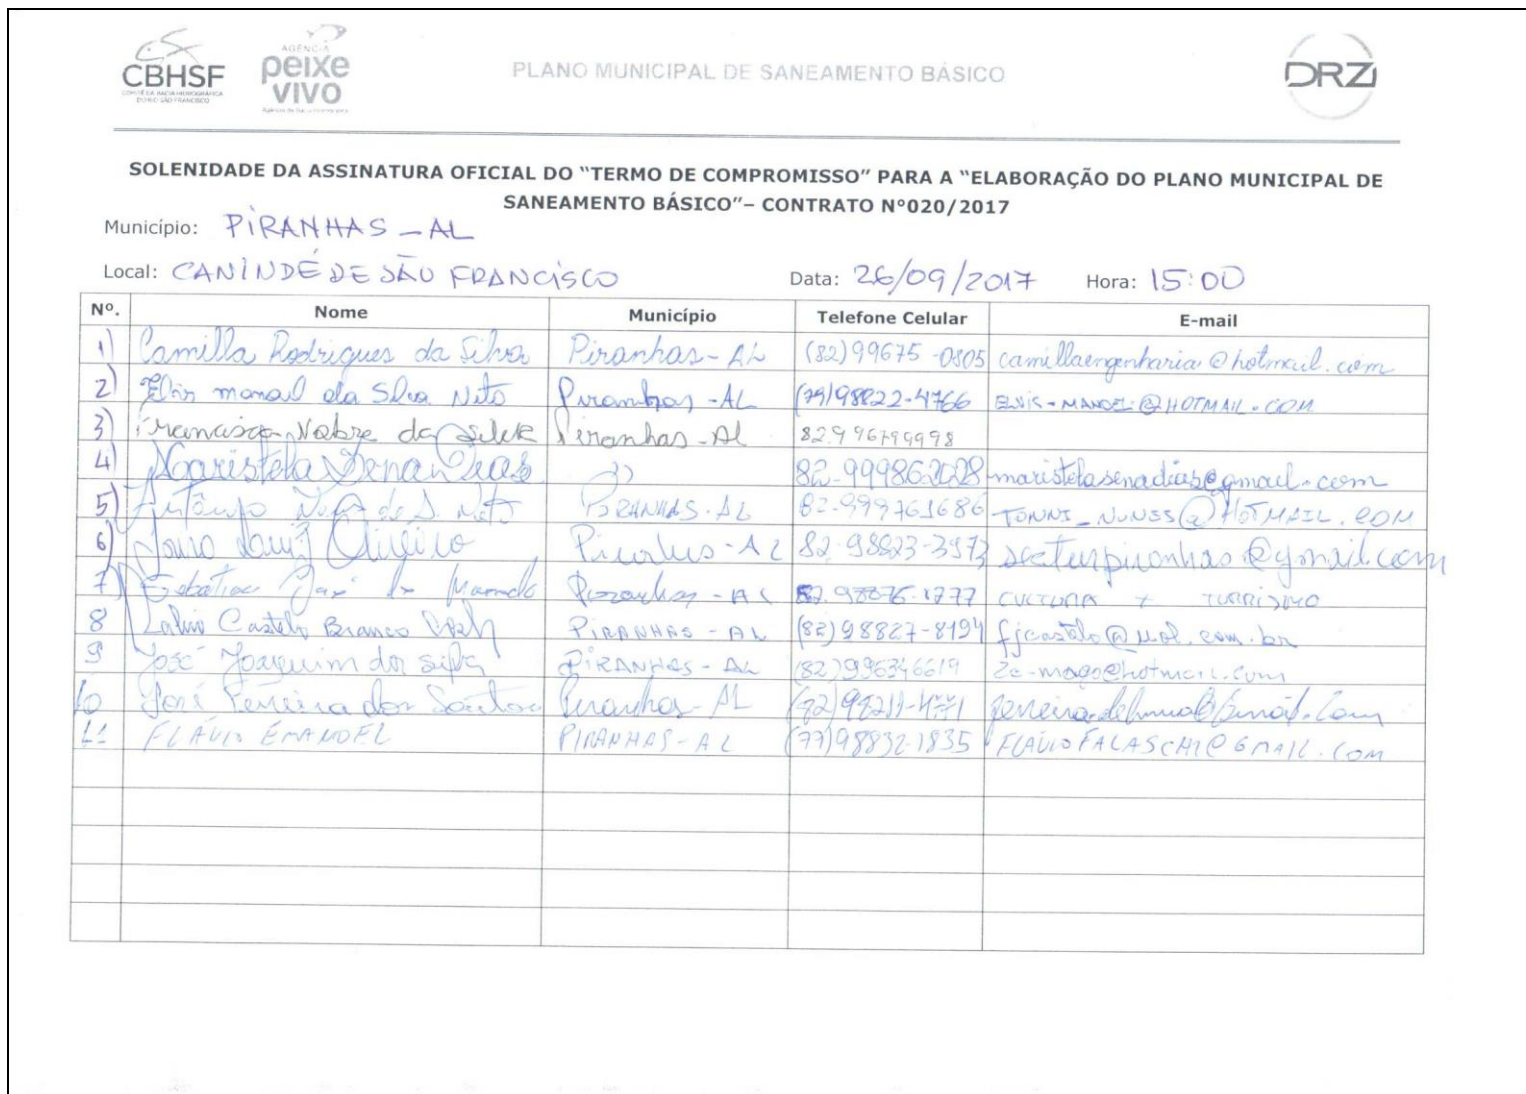 CBHSF
COMITÊ DA BACIA HIDROGRÁFICA
DO RIO SÃO FRANCISCO
AGÊNCIA
peixe
VIVO
PLANO MUNICIPAL DE SANEAMENTO BÁSICO
DRZ
SOLENIDADE DA ASSINATURA OFICIAL DO “TERMO DE COMPROMISSO” PARA A “ELABORAÇÃO DO PLANO MUNICIPAL DE
SANEAMENTO BÁSICO”– CONTRATO Nº020/2017
Município: PIRANHAS - AL
Local: CANINDÉ DE SÃO FRANCISCO Data: 26/09/2017 Hora: 15:00
Nº. Nome Município Telefone Celular E-mail
1) Camilla Rodrigues da Silva Piranhas - AL (82)99675-0805 camillaengenharia@hotmail.com
2) Elvis manoel da Silva Neto Piranhas - AL (79)98822-4766 ELVIS-MANOEL@HOTMAIL.COM
3) Francisco Nobre da Silva Piranhas - Al 82.996799998
4) Maristela Sena Dias 82-999862028 maristelasenadias@gmail.com
5) Antônio de S. Neto PIRANHAS - AL 82-999761686 TONNI_NUNES@HOTMAIL.COM
6) Luiz Piranhas - AL 82-98823-3973 secturpiranhas@gmail.com
7) José Piranhas - AL 82.98876-1777 CULTURA + TURRISMO
8 Castelo Branco PIRANHAS - AL (82)98827-8194 fjcastelo@uol.com.br
9 José Joaquim da silva PIRANHAS - AL (82)996346619 ze-mago@hotmail.com
10 José Pereira dos Santos Piranhas - AL
11 FLÁVIO EMANOEL PIRANHAS - AL (77)98832-1835 FLAVIOFALASCHI@GMAIL.COM